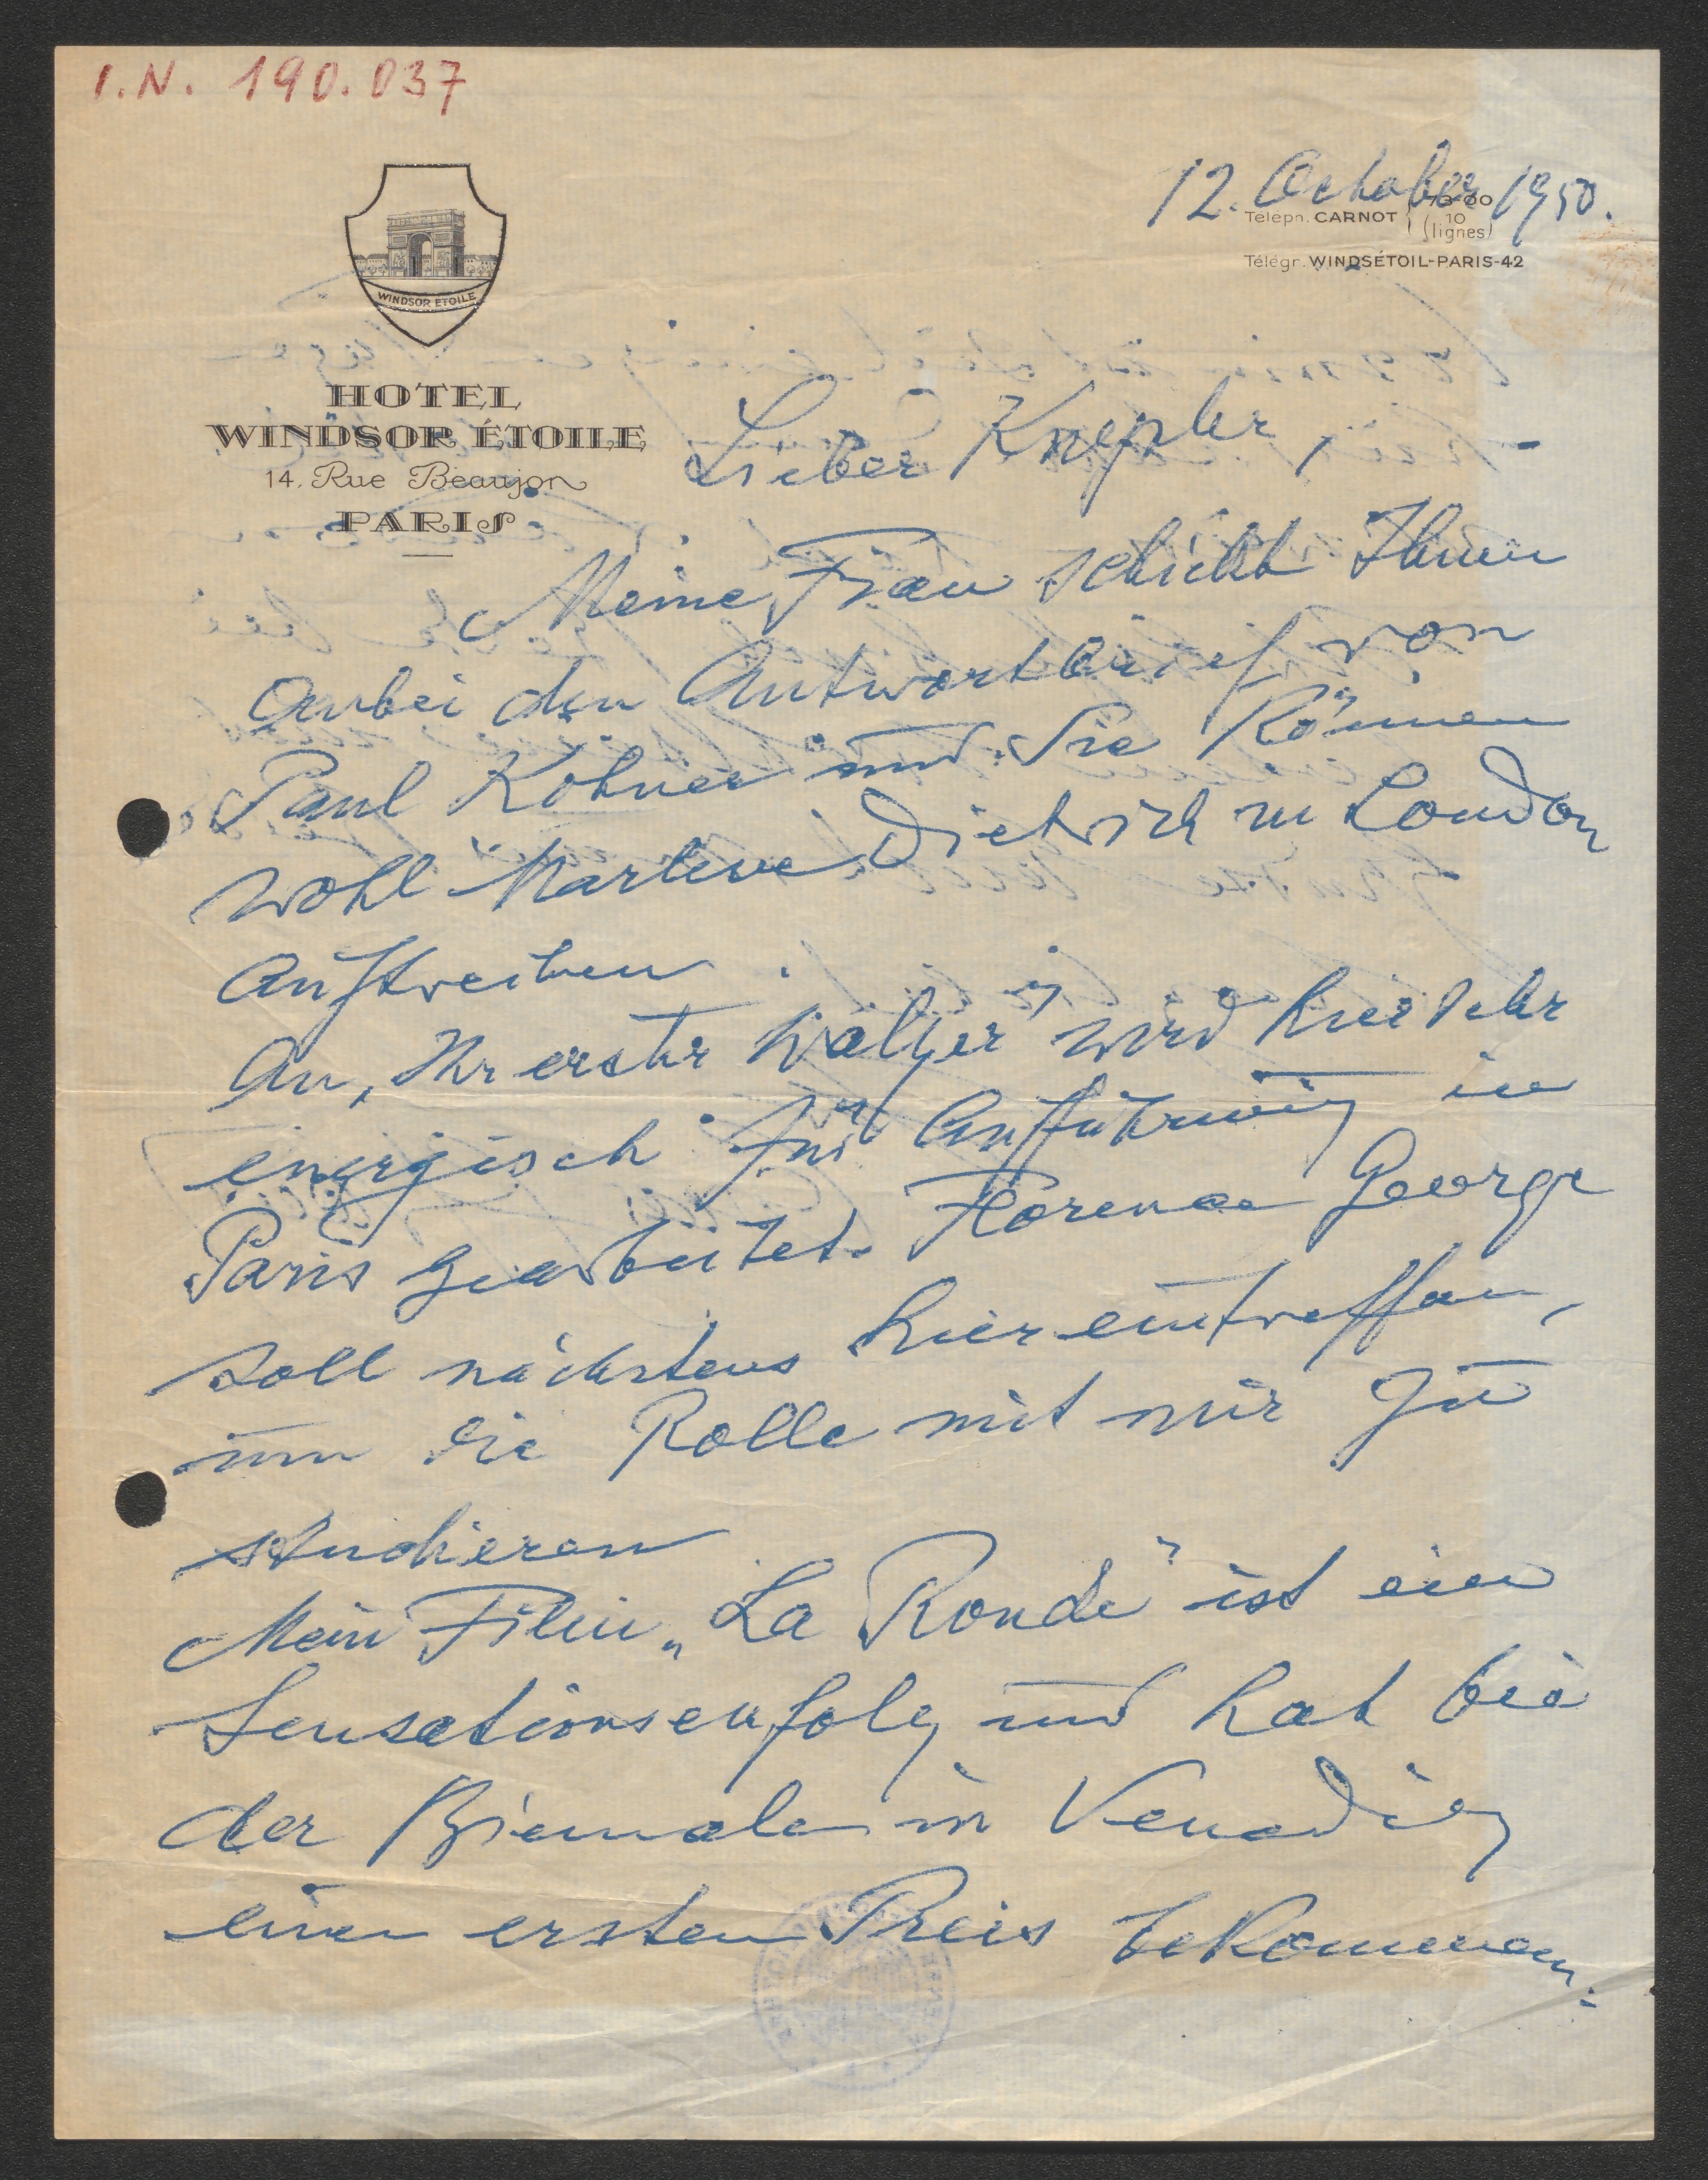 I.N. 190.037
12. October 1950.
Teleph. CARNOT 10 (lignes)
Télégr. WINDSÉTOIL-PARIS-42
WINDSOR ETOILE
HOTEL
WINDSOR ÉTOILE
14. Rue Beaujon
PARIS
Lieber Knepler,
Meine Frau schickt Ihnen
anbei den Antwortbrief von
Paul Kohner und Sie können
wohl Marlene Dietrich in London
auftreiben.
An „Ihr erster Walzer" wird hier sehr
energisch für Aufführung in
Paris gearbeitet. Florence George
soll nächstens hier eintreffen,
um die Rolle mit mir zu
studieren
Mein Film „La Ronde" ist ein
Sensationserfolg und hat bei
der Biennale in Venedig
einen ersten Preis bekommen.